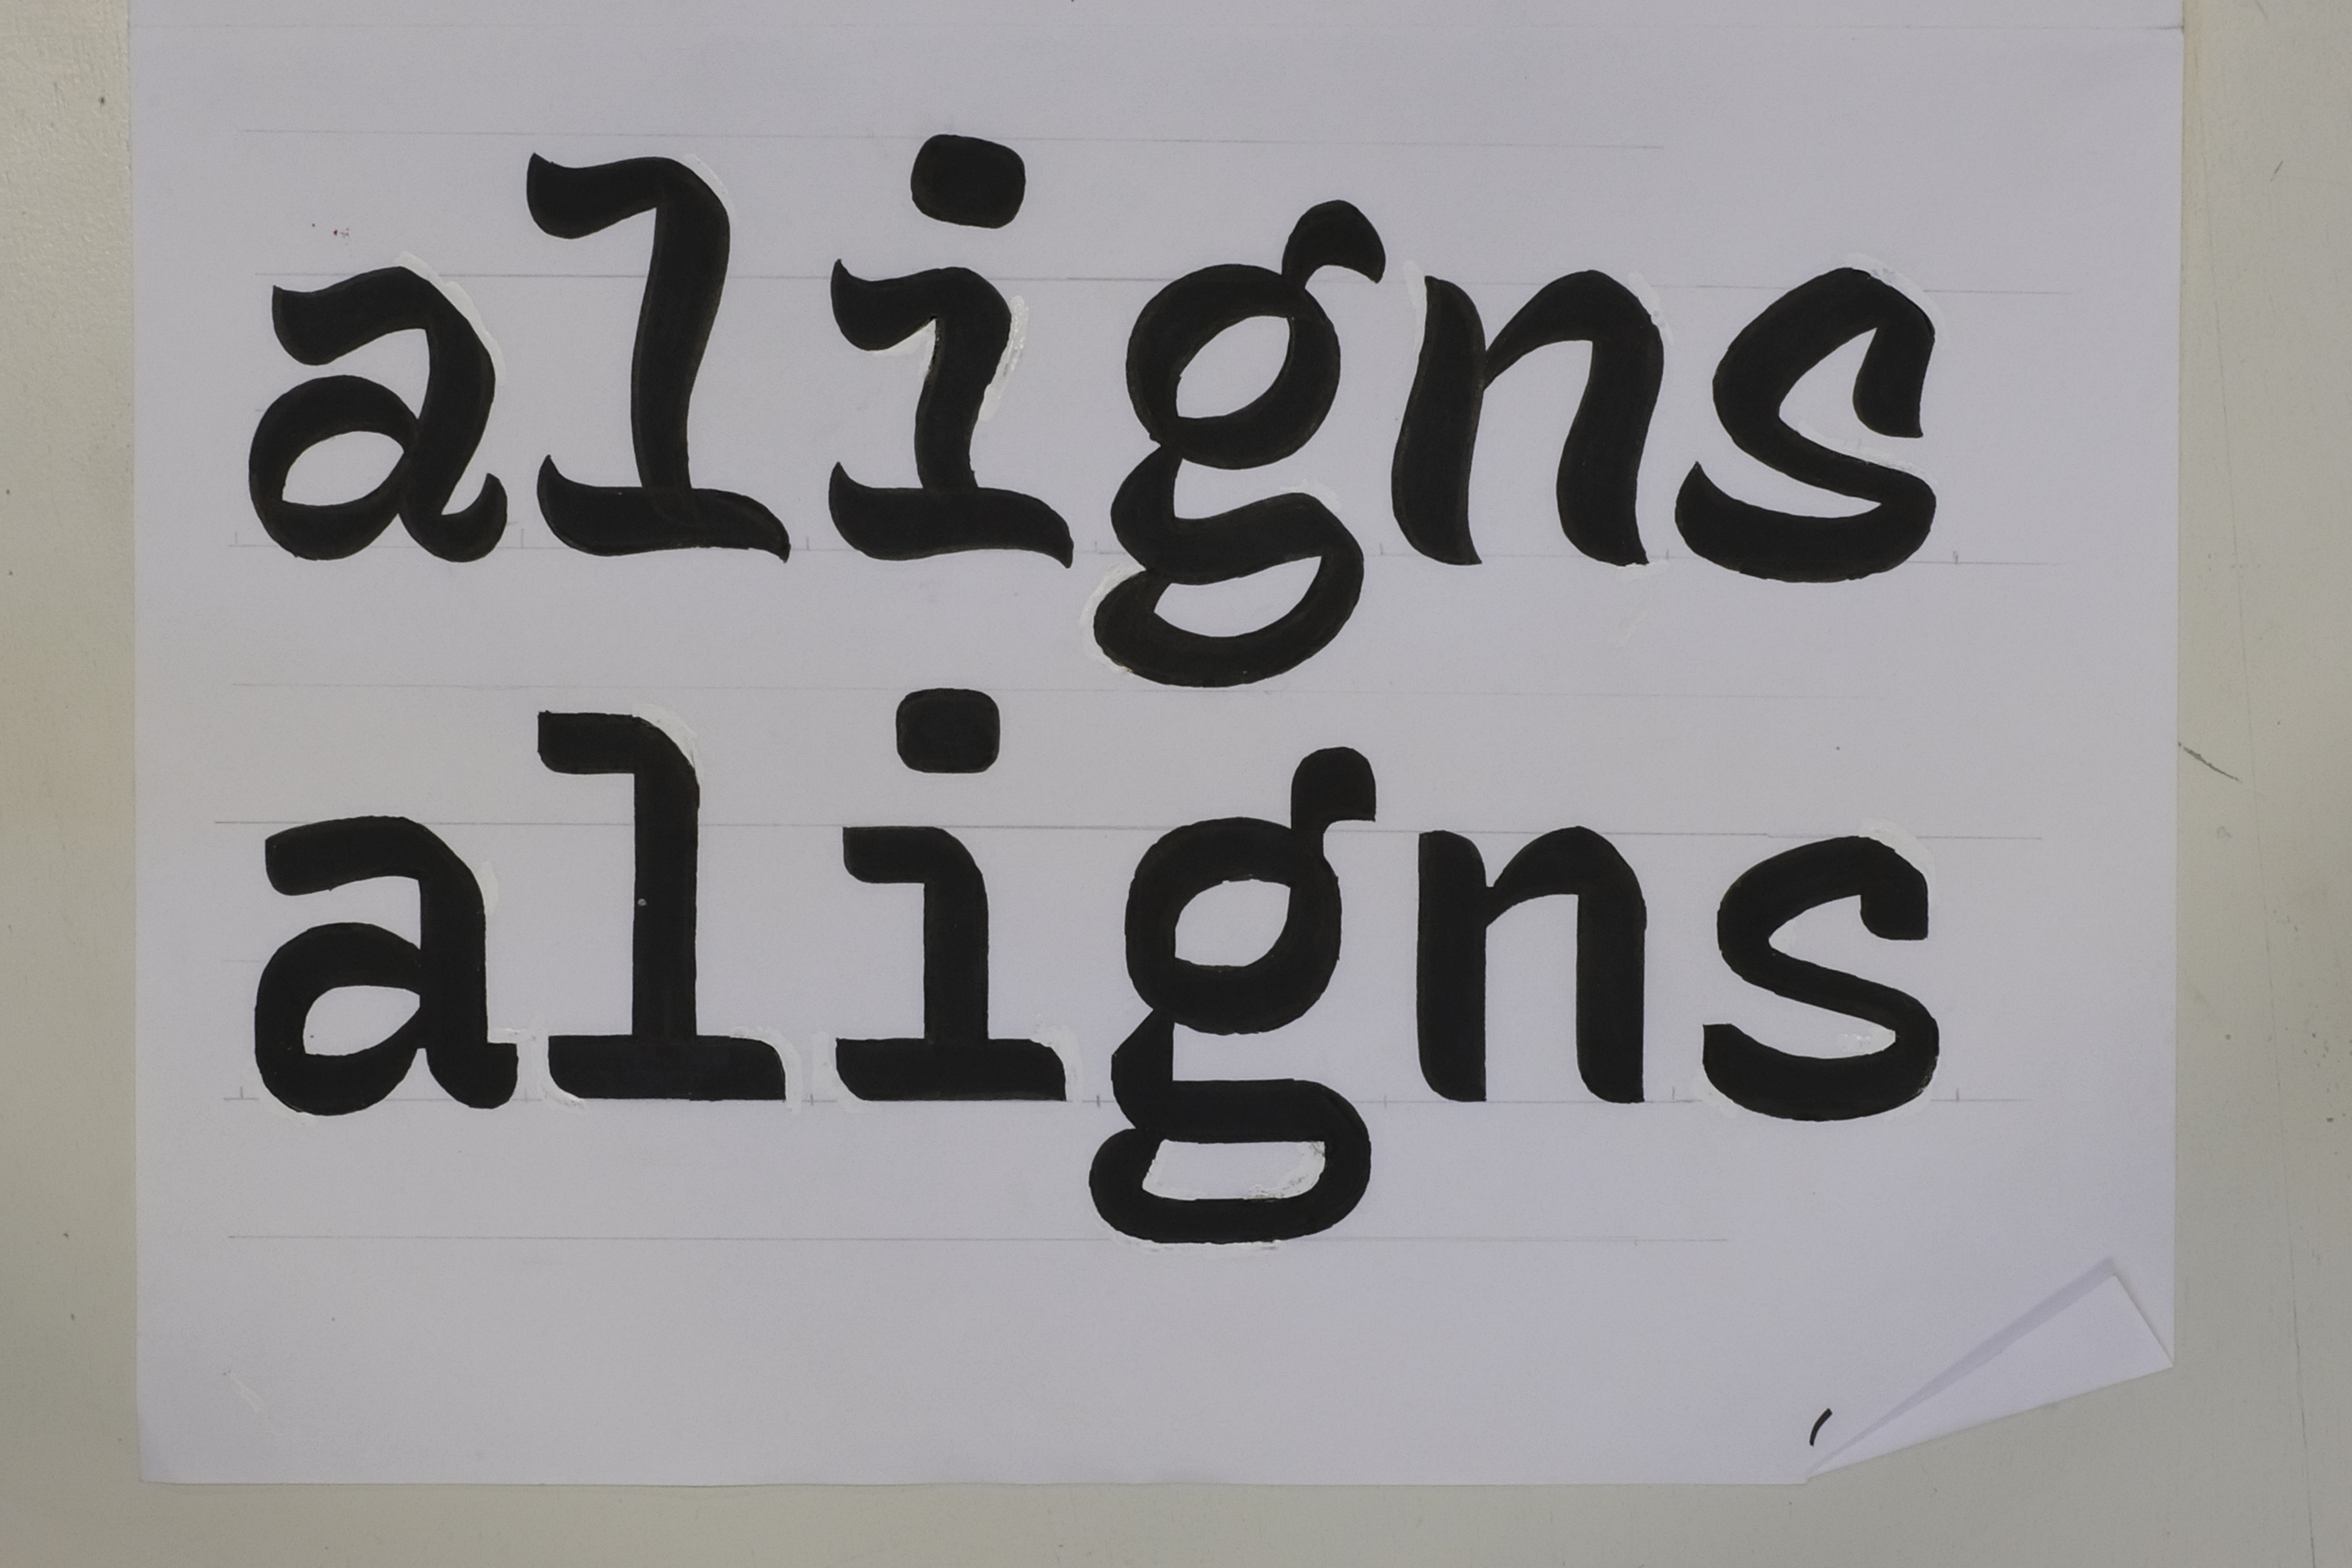 aligns
aligns